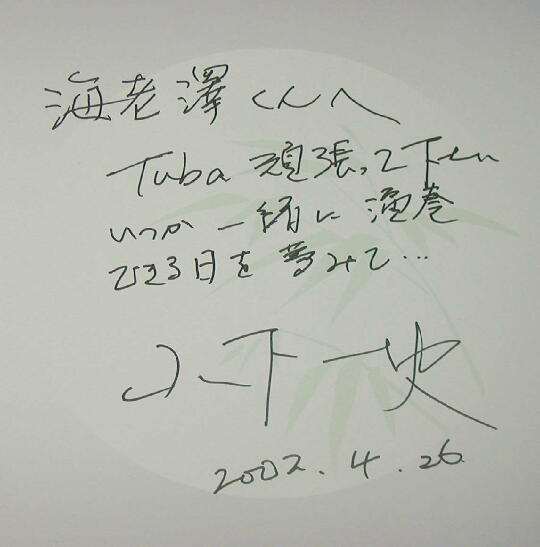 海老澤くんへ
Tuba 頑張って下さい
いつか一緒に演奏
できる日を夢みて…
山下一史
2002.4.26